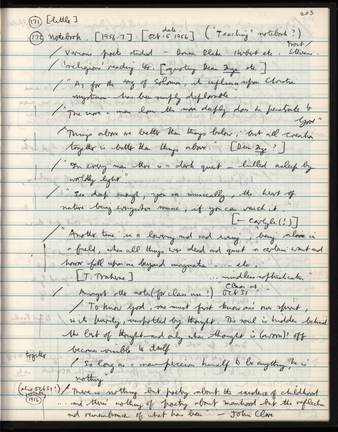 203
(171) [Little]
(172) Notebook. [1956-7] [Oct 15 1956] ("Teaching" notebook?)
date
Various poets studied - Donne Blake Herbert etc.
'religious' reading etc. [quoting Dean Inge etc]
/ "As for the of Solomon, its influence upon Christian
mysticism has been simply deplorable
/ "The more a man loves the more deeply does he penetrate to
God"
/ "Things above are better than things below; but all creation
together is better than things above" [Dean Inge?]
/ "In every man there is a dark quest - lulled asleep by
worldly light"
/ "See deep enough, you see musically, the heart of
nature being everywhere music, if you can reach it"
[- Carlyle (!)]
/ "Another time in a lowering and sad evening, being alone in
a field, when all things were dead and quiet a certain want and
horror fell upon me beyond imagination ... etc.
[T. Traherne]
Amongst other notes (for class use?) Oct 31
/ To know God, we must first know our own spirit,
in its purity, unspotted by thought. The soul is hidden behind
the veil of thought and only when thought is (worn)! off
become visible to itself
together
/ So long as a man perceives himself to be anything, he is
nothing
(also Oct 31!)
1956
/ There is nothing but poetry about the existence of childhood
... and there's nothing of poetry about manhood but the reflection
and remembrance of what has been - John Clare